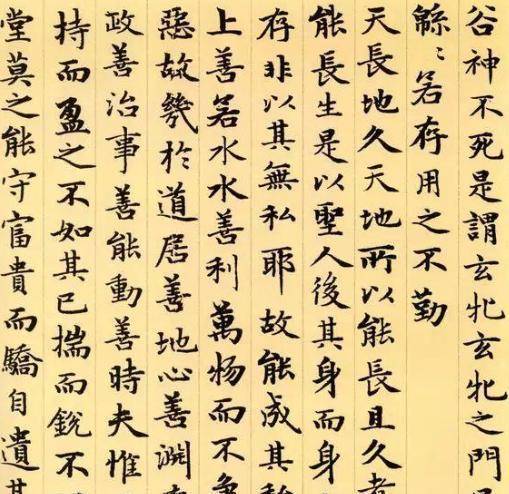 谷神不死是謂玄牝玄牝之門
緜〻若存用之不勤
天長地久天地所以能長且久者
能長生是以聖人後其身而身
存非以其無私耶故能成其私
上善若水水善利萬物而不爭
惡故幾於道居善地心善淵
政善治事善能動善時夫惟
持而盈之不如其已揣而銳不
堂莫之能守富貴而驕自遺其